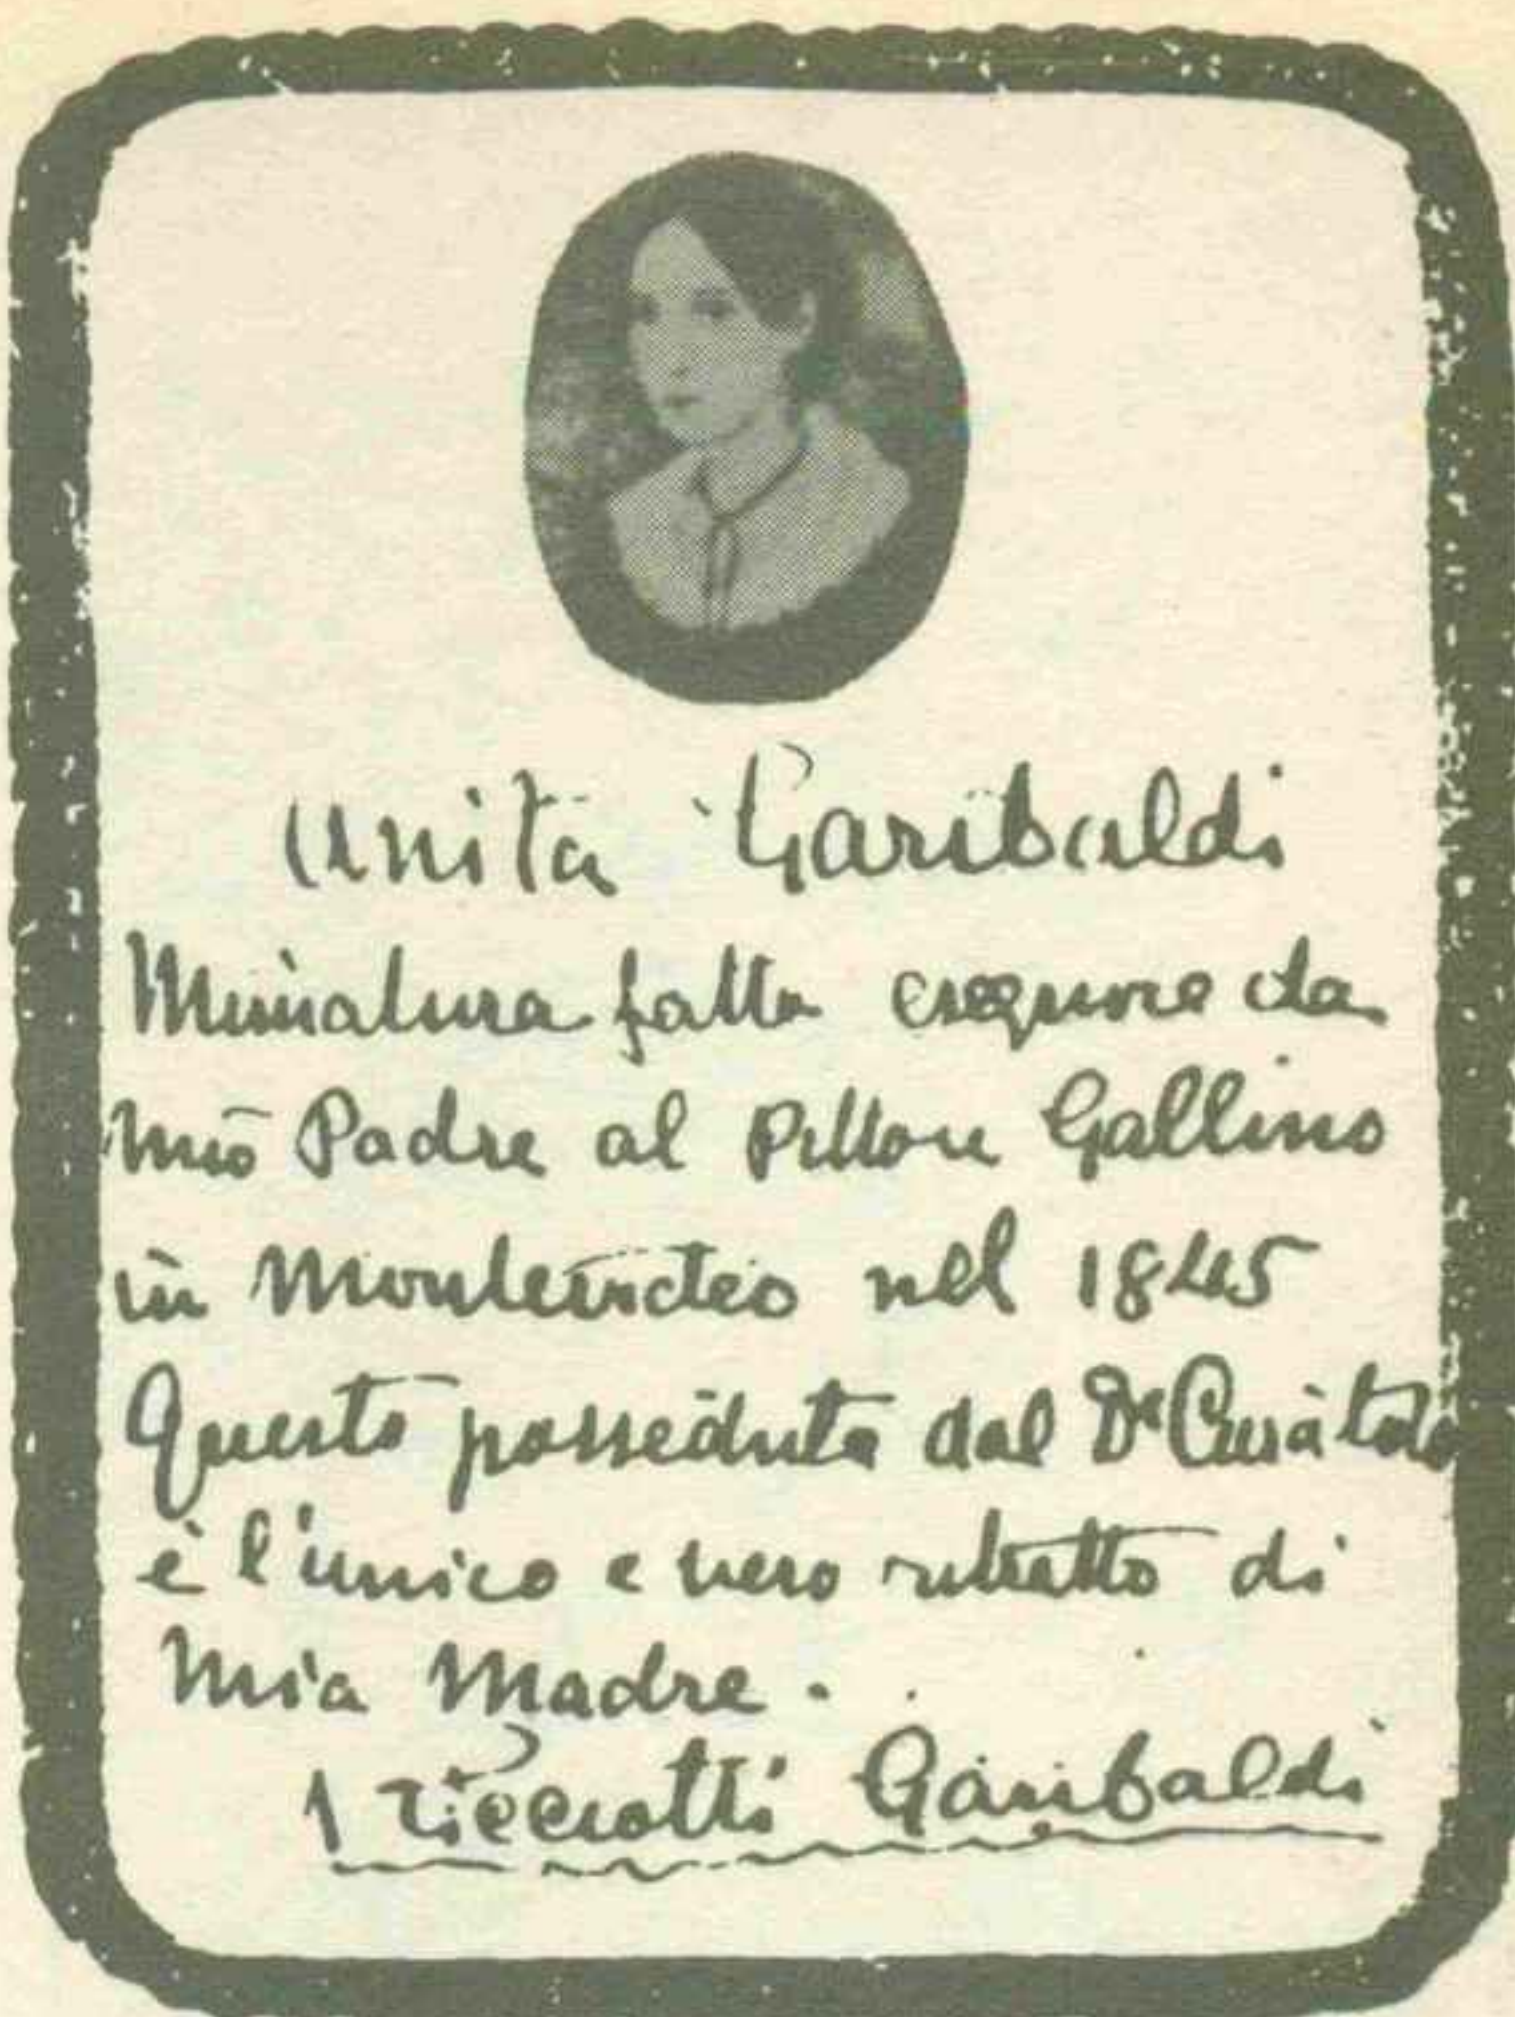 Anita Garibaldi
Miniatura fatta eseguire da
mio Padre al Pittore Gallino
in Montevideo nel 1845
Questa posseduta dal Dr Curàtolo
è l'unico e vero ritratto di
mia Madre.
Ricciotti Garibaldi